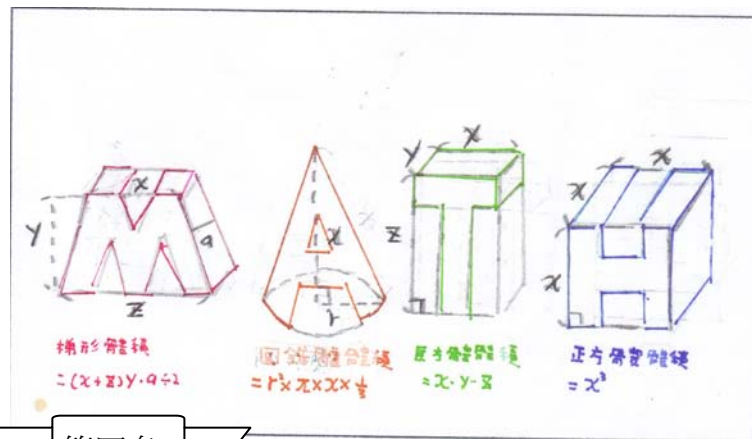 x
Y
a
z
梯形體積
=(x+z)Y·a÷2
x
r
圓錐體體積
=r²×π×x×⅓
x
Y
z
長方體體積
=x·Y·z
x
x
x
正方體體積
=x³